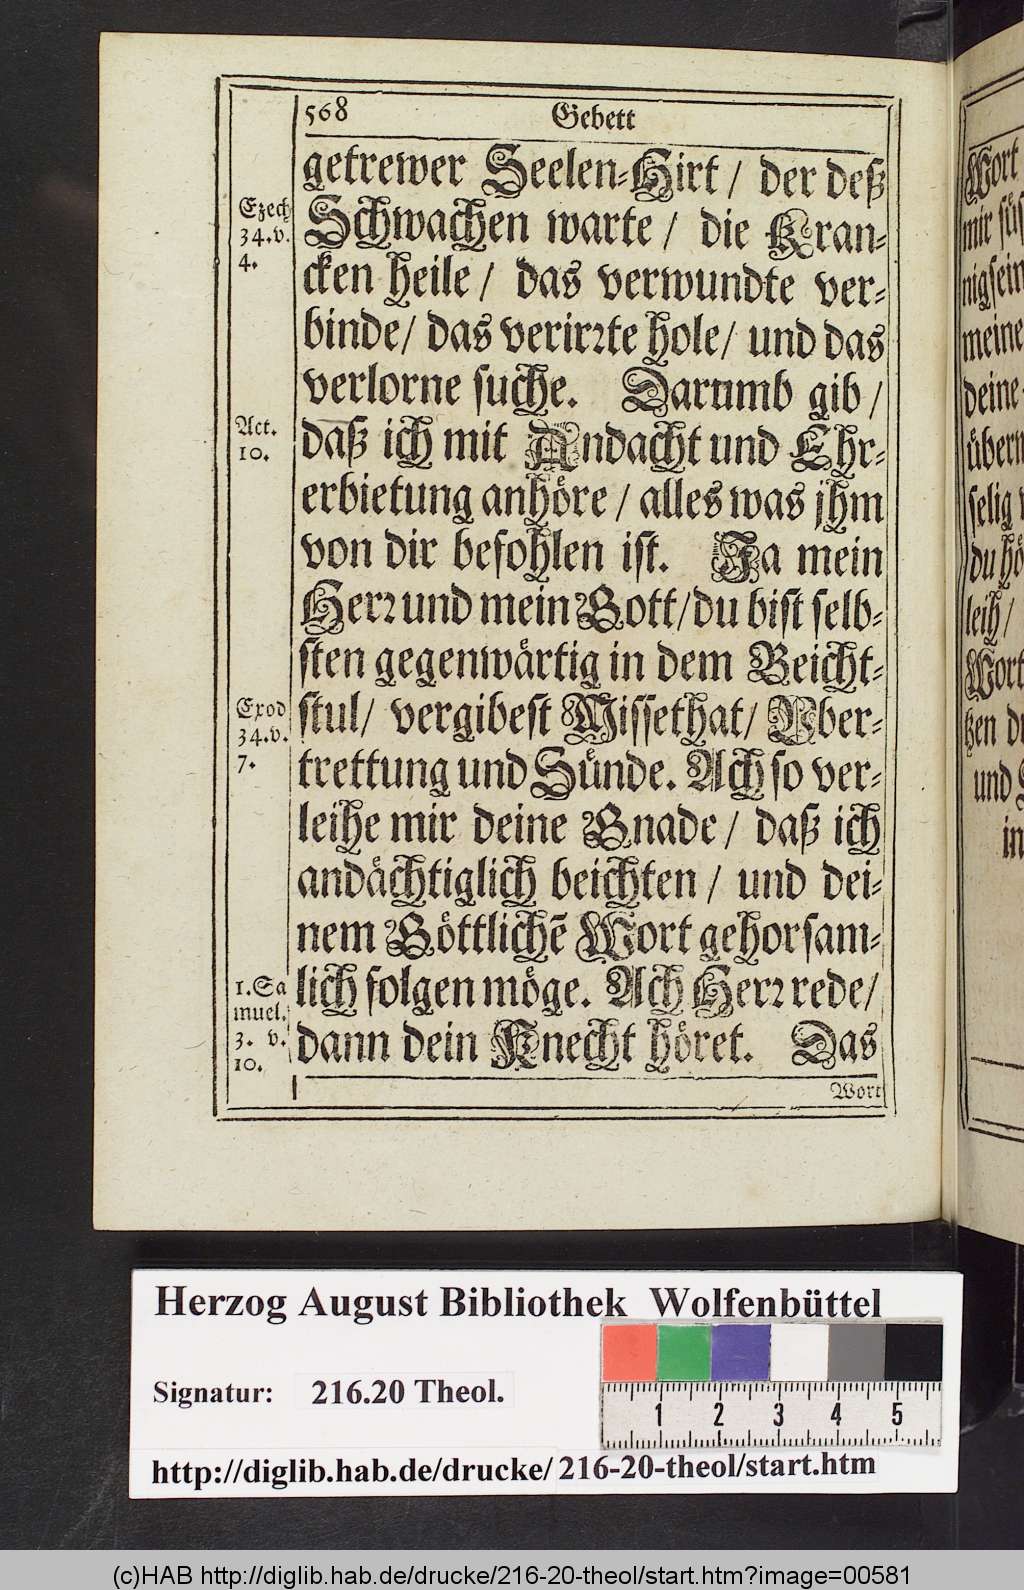 568 Gebett
getrewer Seelen-Hirt / der deß
Schwachen warte / die Kran-
cken heile / das verwundte ver-
binde / das verirꝛte hole / und das
verlorne suche. Darumb gib /
daß ich mit Andacht und Ehr-
erbietung anhöre / alles was jhm
von dir befohlen ist. Ja mein
Herꝛ und mein Gott / du bist selb-
sten gegenwärtig in dem Beicht-
stul / vergibest Missethat / Vber-
trettung und Sünde. Ach so ver-
leihe mir deine Gnade / daß ich
andächtiglich beichten / und dei-
nem Göttlichẽ Wort gehorsam-
lich folgen möge. Ach Herꝛ rede /
dann dein Knecht höret. Das
Wort
Ezech
34. v.
4.
Act.
10.
Exod
34. v.
7.
1. Sa
muel.
3. v.
10.
Wort
mir süs
nigsein
meine
deine
übern
selig
du hö
leih /
Wort
tzen
und
in
Herzog August Bibliothek Wolfenbüttel
Signatur: 216.20 Theol.
1 2 3 4 5
http://diglib.hab.de/drucke/216-20-theol/start.htm
(c)HAB http://diglib.hab.de/drucke/216-20-theol/start.htm?image=00581